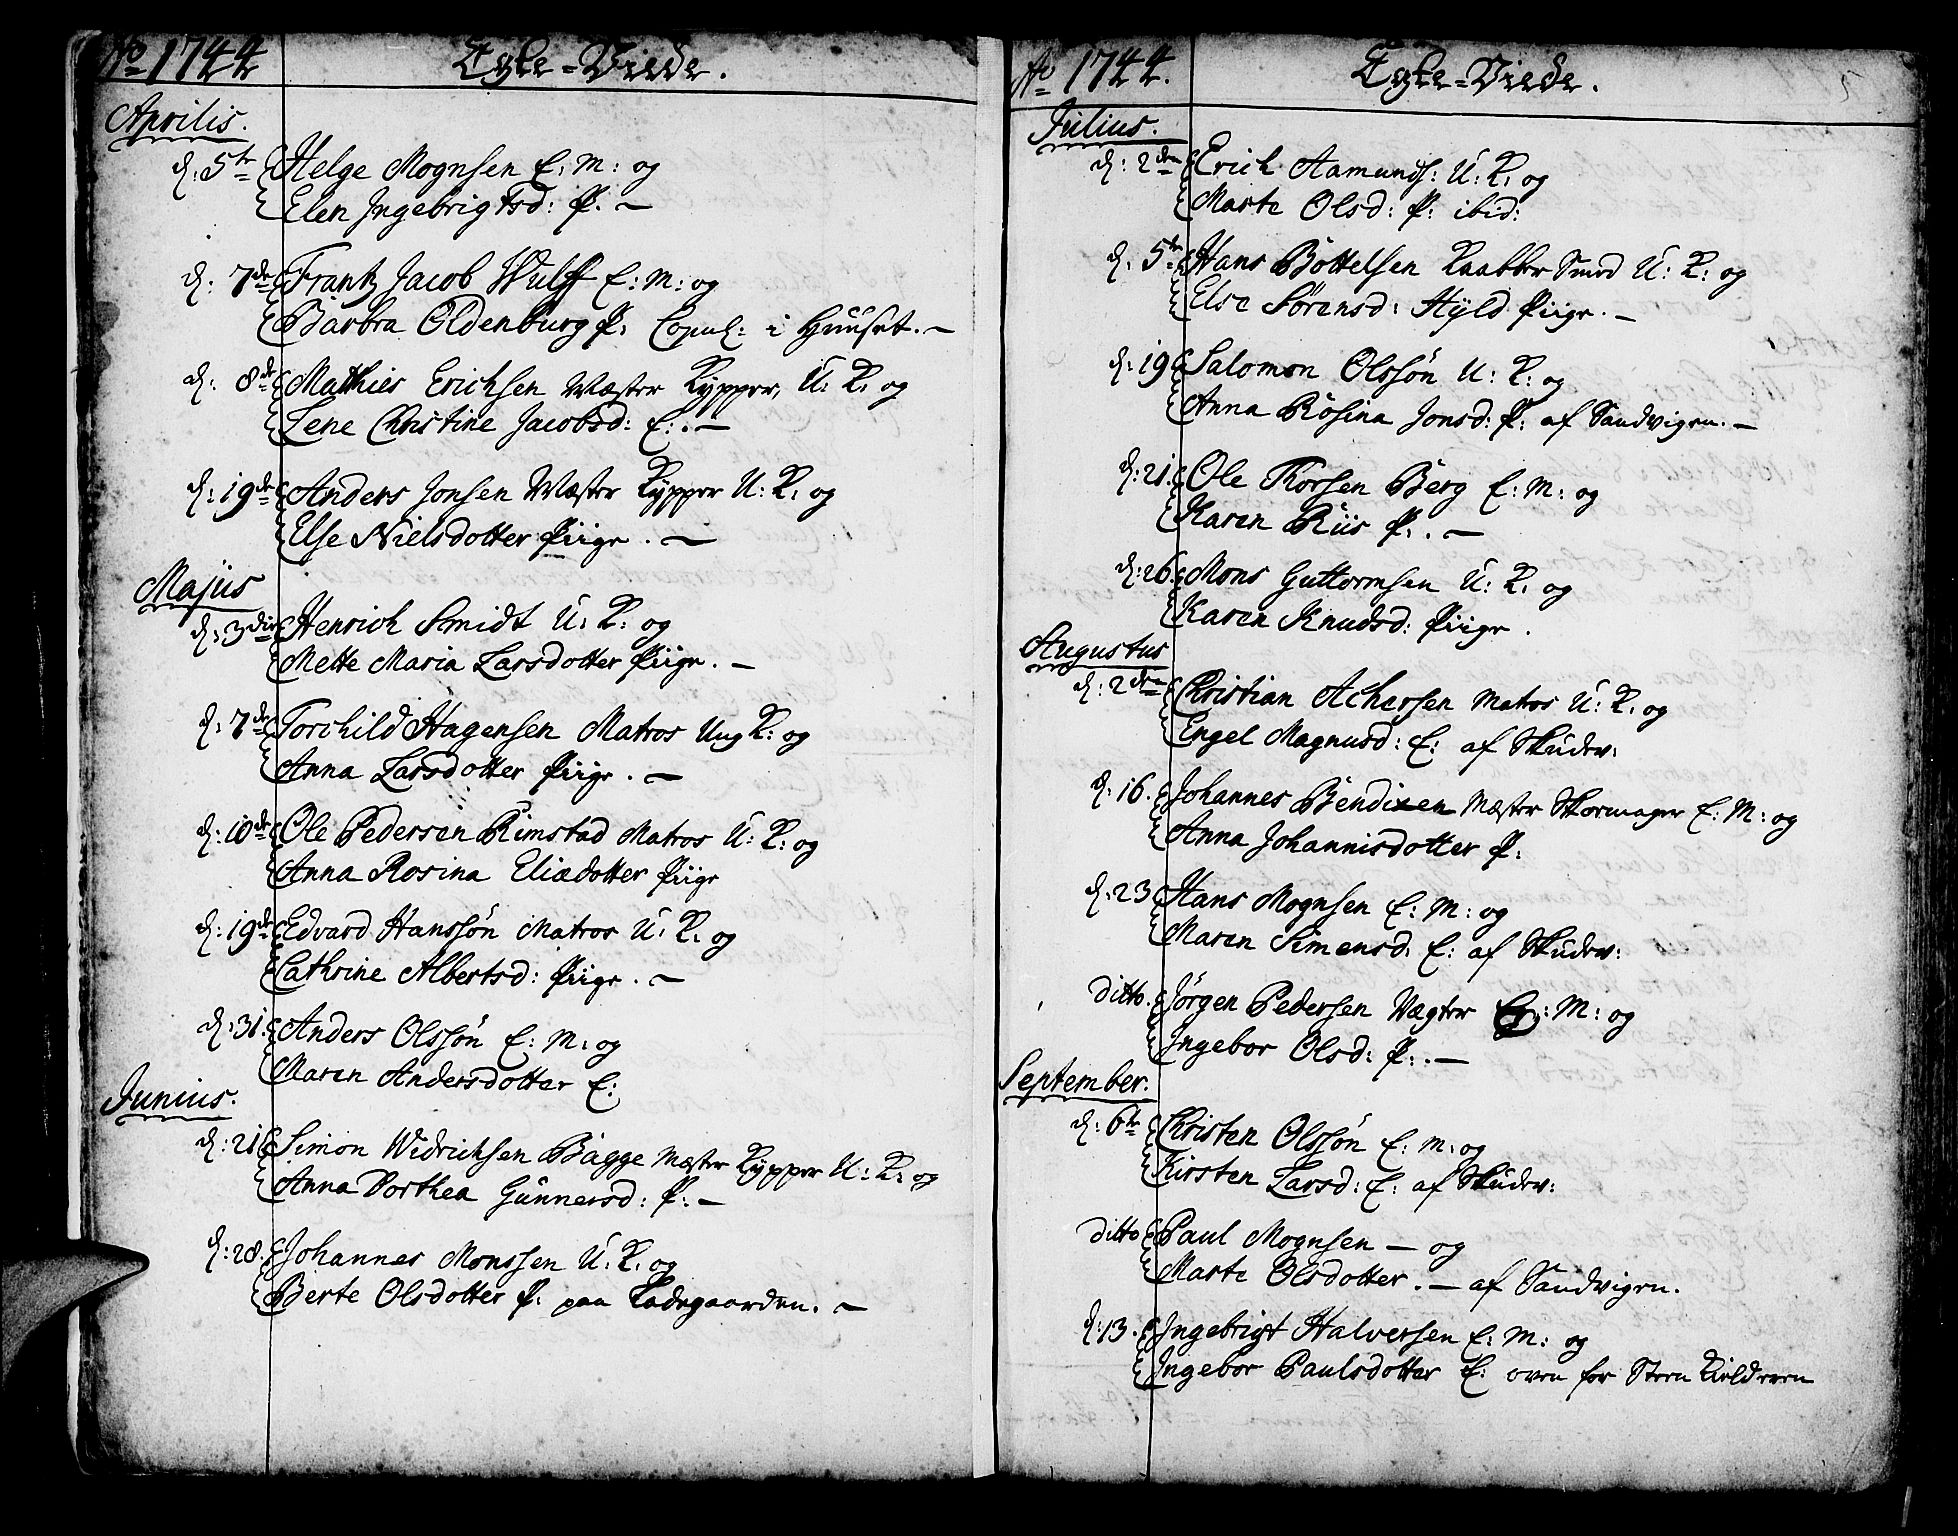 Ao 1744
Ægte-Viede.
Aprilis.
d. 5te Helge Mognsen E: M: og
Elen Ingebrigtsd: P. —
d. 7de Frantz Jacob Wulff E: M: og
Barbra Oldenburg P: Copul: i Huuset. —
d. 8de Mathies Erichsen Mæster Kypper, U: K: og
Lene Christine Jacobsd: E: . —
d. 19de Anders Jonsen Mæster Kypper U: K: og
Else Nielsdotter Piige . —
Majus
d. 3die Henrich Smidt U: K: og
Mette Maria Larsdotter Piige. —
d. 7de Torchild Hagensen Matros Ung K: og
Anna Larsdotter Piige . —
d. 10de Ole Pedersen Rimstad Matros U: K: og
Anna Rosina Eliædotter Piige
d. 19de Edvard Hanssøn Matros U: K. og
Cathrine Albertsd: Piige . —
d. 31. Anders Olssøn E: M: og
Maren Andersdotter E:
Junius.
d. 21 Simon Widrichsen Bagge Mæster Kypper U: K: og
Anna Dorthea Gunnersd: P: —
d. 28. Johannes Monssen U: K. og
Berte Olsdotter P: paa Ladegaarden. —
Ao 1744.
Ægte-Viede.
5
Julius.
d: 2den Erich Aamunds: U: K: og
Marte Olsd: P: ibid:
d. 5te Hans Bøttelsen Kaabber Smed U: K: og
Else Sørensd: Hyld Piige. —
d. 19 Salomon Olssøn U: K: og
Anna Rosina Jonsd: P: af Sandvigen. —
d. 21. Ole Thorsen Berg E: M: og
Karen Riis P: . —
d. 26. Mons Guttormsen U: K: og
Karen Knudsd: Piige .
Augustus
d. 2den Christian Achersen Matros U: K. og
Engel Magnusd: E: af Skudev:
d. 16. Johannes Bendixen Mæster Skormager E: M: og
Anna Johannisdotter P:
d. 23 Hans Mognsen E: M: og
Maren Simensd: E: af Skudev:
ditto. Jørgen Pedersen Vægter E: M: og
Ingebor Olsd: P: . —
September.
d. 6te Christen Olssøn E: M: og
Kirsten Larsd: E: af Skudev:
ditto Paul Mognsen — og
Marte Olsdotter . — af Sandvigen.
d. 13. Ingebrigt Halversen E: M: og
Ingebor Paulsdotter E: oven for Steen Kielderen